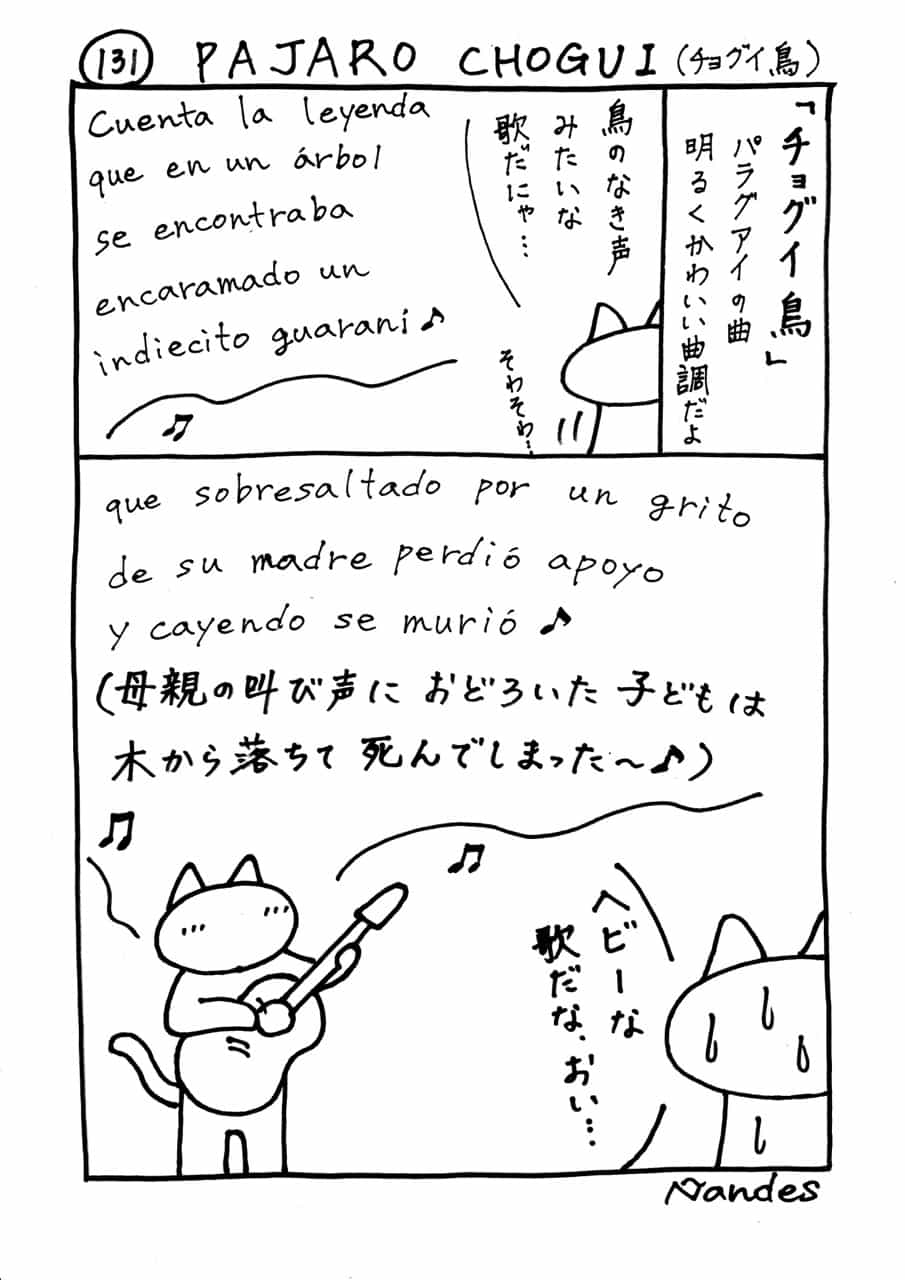 131 PAJARO CHOGUI (チョグイ鳥)
「チョグイ鳥」
パラグアイの曲
明るくかわいい曲調だよ
鳥のなき声
みたいな
歌だにゃ…
そわそわ…
Cuenta la leyenda
que en un árbol
se encontraba
encaramado un
indiecito guaraní♪
que sobresaltado por un grito
de su madre perdió apoyo
y cayendo se murió♪
(母親の叫び声に おどろいた 子どもは
木から落ちて 死んでしまった〜♪)
ヘビーな
歌だな、おい…
Nandes